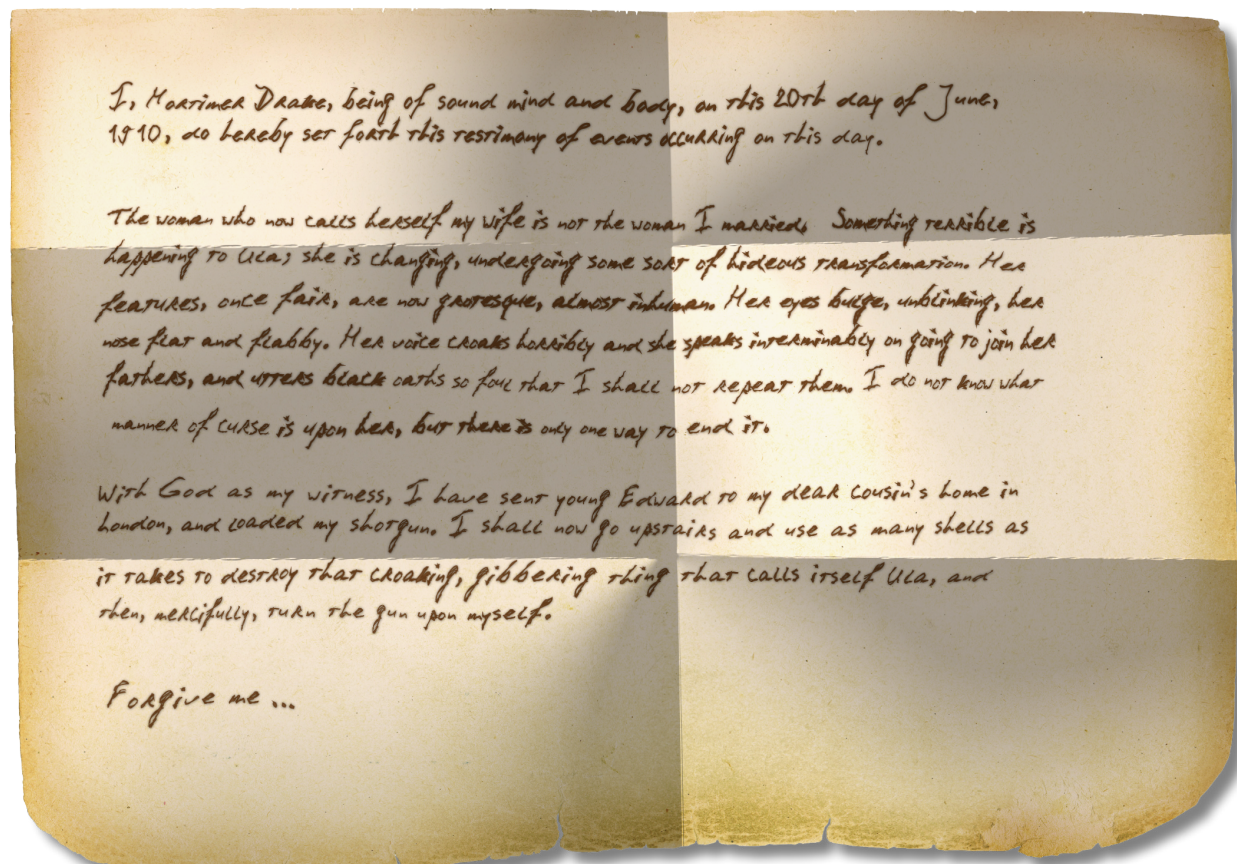 I, Mortimer Drake, being of sound mind and body, on this 20th day of June,
1910, do hereby set forth this testimony of events occurring on this day.
The woman who now calls herself my wife is not the woman I married. Something terrible is
happening to Ula; she is changing, undergoing some sort of hideous transformation. Her
features, once fair, are now grotesque, almost inhuman. Her eyes bulge, unblinking, her
nose flat and flabby. Her voice croaks horribly and she speaks interminably on going to join her
fathers, and utters black oaths so foul that I shall not repeat them. I do not know what
manner of curse is upon her, but there is only one way to end it.
With God as my witness, I have sent young Edward to my dear cousin's home in
London, and loaded my shotgun. I shall now go upstairs and use as many shells as
it takes to destroy that croaking, gibbering thing that calls itself Ula, and
then, mercifully, turn the gun upon myself.
Forgive me ...